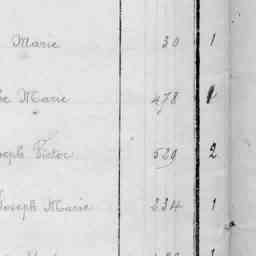 Marie 30 1
Marie 478 1
Victor 529 2
Joseph Marie 234 1